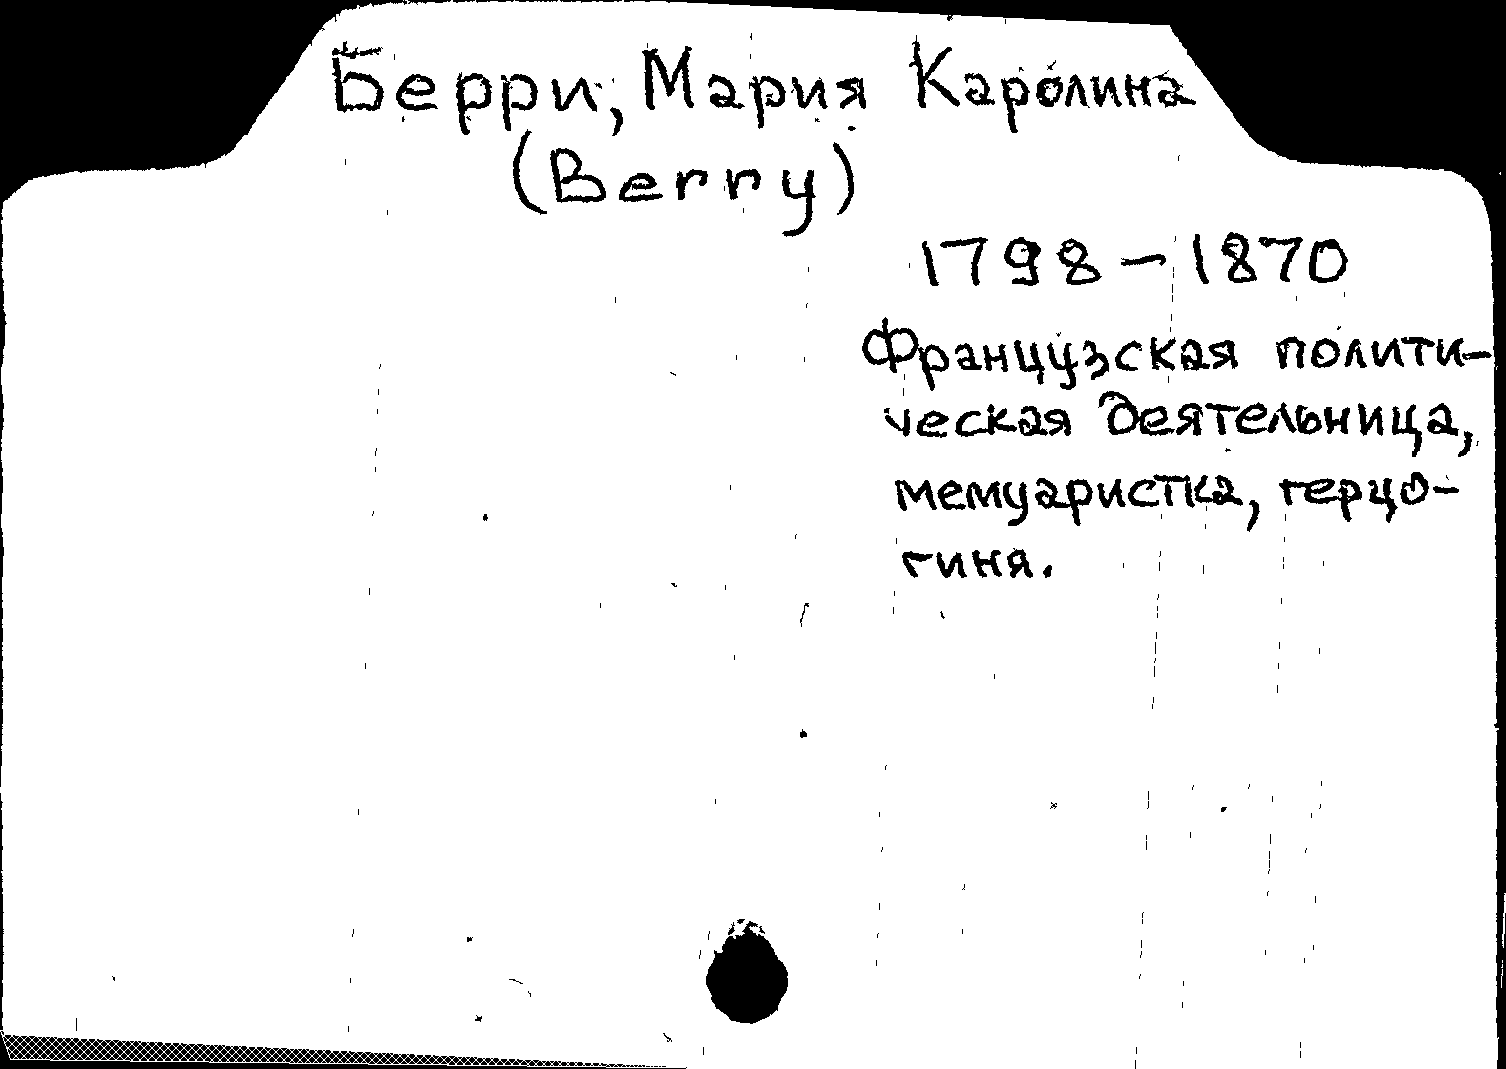 Берри, Мария Каролина
(Berry)
1798 – 1870
Французская полити-
ческая деятельница,
мемуаристка, герцо-
гиня.